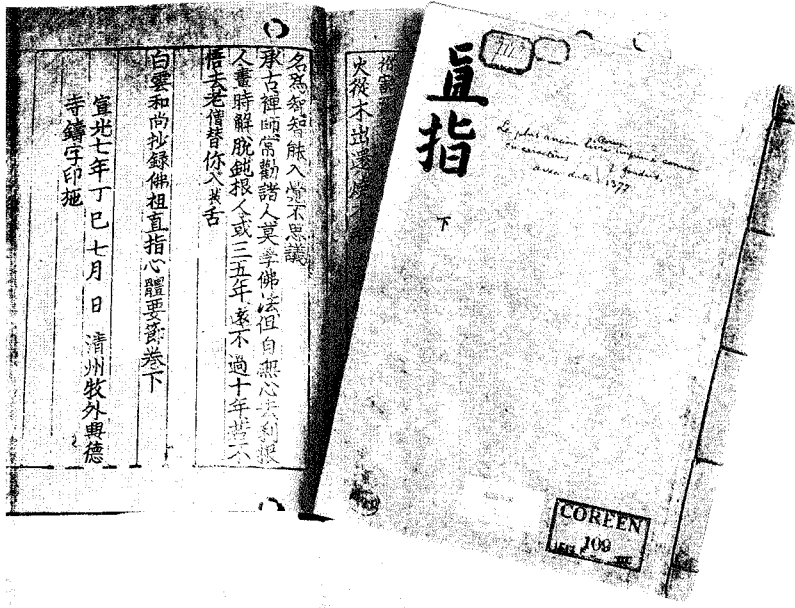 直指
下
Le plus ancien livre imprimé connu
en caractères fondus,
avec date = 1377
COREEN
109
火從木出還
名爲智智入覺不思議
承古禪師常勸諸人莫學佛法但自無心去利根
人晝時解脫鈍根人或三五年遠不過十年若不
悟去老僧替你入拔舌
白雲和尚抄錄佛祖直指心體要節卷下
宣光七年丁巳七月 日 清州牧外興德
寺鑄字印施